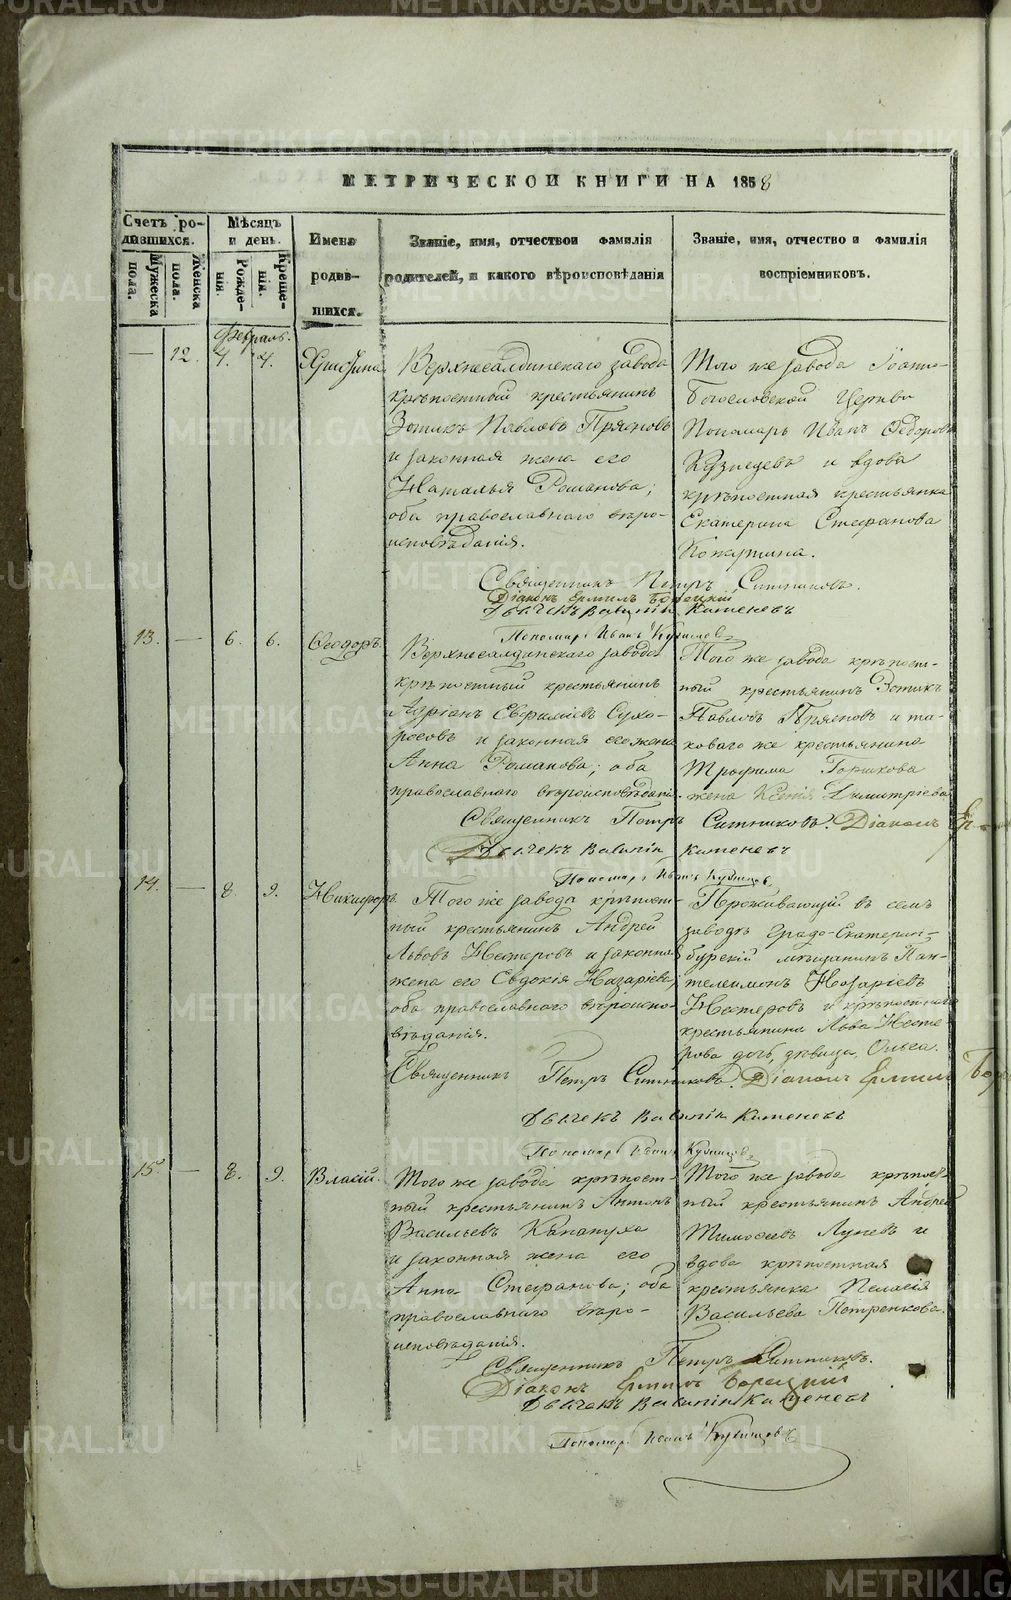 МЕТРИЧЕСКОЙ КНИГИ НА 1858
Счетъ ро-
дившихся.
Мужеска пола.
Женска пола.
Мѣсяцъ
и день.
Рожде-
нія.
Креще-
нія.
Имена
родив-
шихся.
Званіе, имя, отчество и фамилія
родителей, и какого вѣроисповѣданія
Званіе, имя, отчество и фамилія
воспріемниковъ.
Февраль.
— 12. 4. 4. Христина
Верхнесалдинскаго завода
крѣпостный крестьянинъ
Зотикъ Павловъ Пряновъ
и законная жена его
Наталья Романова;
оба православнаго вѣро-
исповѣданія.
Того же завода Іоанно-
Богословской Церкви
Пономарь Иванъ Ѳедоровъ
Кузнецевъ и вдова
крѣпостная крестьянка
Екатерина Стефанова
Священникъ Петръ Ситниковъ.
Діаконъ Ермилъ Борецкій
Дьячекъ Каменевъ
Пономарь Иванъ Кузнецовъ
13. — 6. 6. Ѳеодоръ.
Верхнесалдинскаго завода
крѣпостный крестьянинъ
Адріанъ Евфиміевъ Сухо-
росовъ и законная его жена
Анна Романова; оба
православнаго вѣроисповѣданія.
Того же завода крѣпост-
ный крестьянинъ Зотикъ
Павловъ Пряновъ и та-
коваго же крестьянина
Трофима Горшкова
жена Ксенія Димитріева
Священникъ Петръ Ситниковъ. Діаконъ
Дьячекъ Каменевъ
Пономарь Иванъ Кузнецовъ
14. — 8. 9. Никифоръ.
Того же завода крѣпост-
ный крестьянинъ Андрей
Львовъ Нестеровъ и законная
жена его Евдокія Назаріева,
оба православнаго вѣроиспо-
вѣданія.
Проживающій въ семъ
заводѣ Градо-Екатерин-
бурскій мѣщанинъ Пан-
телеимонъ Назаріевъ
Нестеровъ и крѣпостнаго
крестьянина Льва Несте
рова дочь, дѣвица, Ольга.
Священникъ Петръ Ситниковъ. Діаконъ Ермилъ
Дьячекъ Каменевъ
Пономарь Иванъ Кузнецовъ
15. — 8. 9. Власій.
Того же завода крѣпост-
ный крестьянинъ Антонъ
Васильевъ Канапуха
и законная жена его
Анна Стефанова; оба
православнаго вѣро-
исповѣданія.
Того же завода крѣпост-
ный крестьянинъ Андрей
Тимофеевъ Луневъ и
вдова крѣпостная
крестьянка Пелагія
Васильева Петренкова.
Священникъ Петръ Ситниковъ.
Діаконъ Ермилъ Борецкій
Дьячекъ Каменевъ
Пономарь Иванъ Кузнецовъ
METRIKI.GASO-URAL.RU